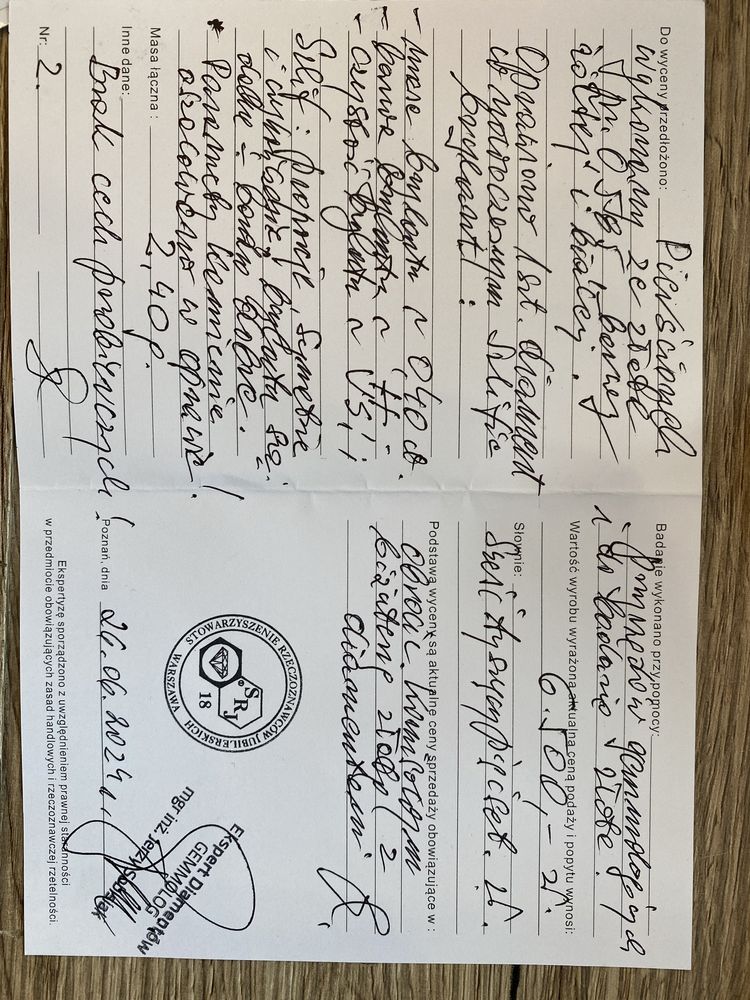 Do wyceny przedłożono: Pierścionek
wykonany ze złota
pr. 0,585 barwy
żółtej i białej.
Oprawiono 1 szt. diament
o nowoczesnym szlifie
brylant!
- masa brylantu ~ 0,40 ct.
- barwa brylantu ~ H
- czystość brylantu ~ VS1
Szlif: proporcje, symetria
i
brylantu są
bardzo dobre.
* Parametry kamienia
szacowano w oprawie!
Masa łączna: 2,40 g.
Inne dane:
Brak cech probierczych!
Nr: 2.
Badanie wykonano przy pomocy:
przyrządów gemmologicznych
i do badania złota.
Wartość wyrobu wyrażona aktualną ceną podaży i popytu wynosi:
6.500,- zł.
Słownie:
Sześć tysięcy pięćset. zł.
Podstawą wyceny są aktualne ceny sprzedaży obowiązujące w:
obrocie komisowym
biżuterią złotą z
diamentami.
STOWARZYSZENIE RZECZOZNAWCÓW JUBILERSKICH
WARSZAWA
SRJ
18
Poznań, dnia 26.06.2024 r.
Ekspert Diamentów
GEMMOLOG
mgr inż. Jerzy
Ekspertyzę sporządzono z uwzględnieniem prawnej staranności
w przedmiocie obowiązujących zasad handlowych i rzeczoznawczej rzetelności.